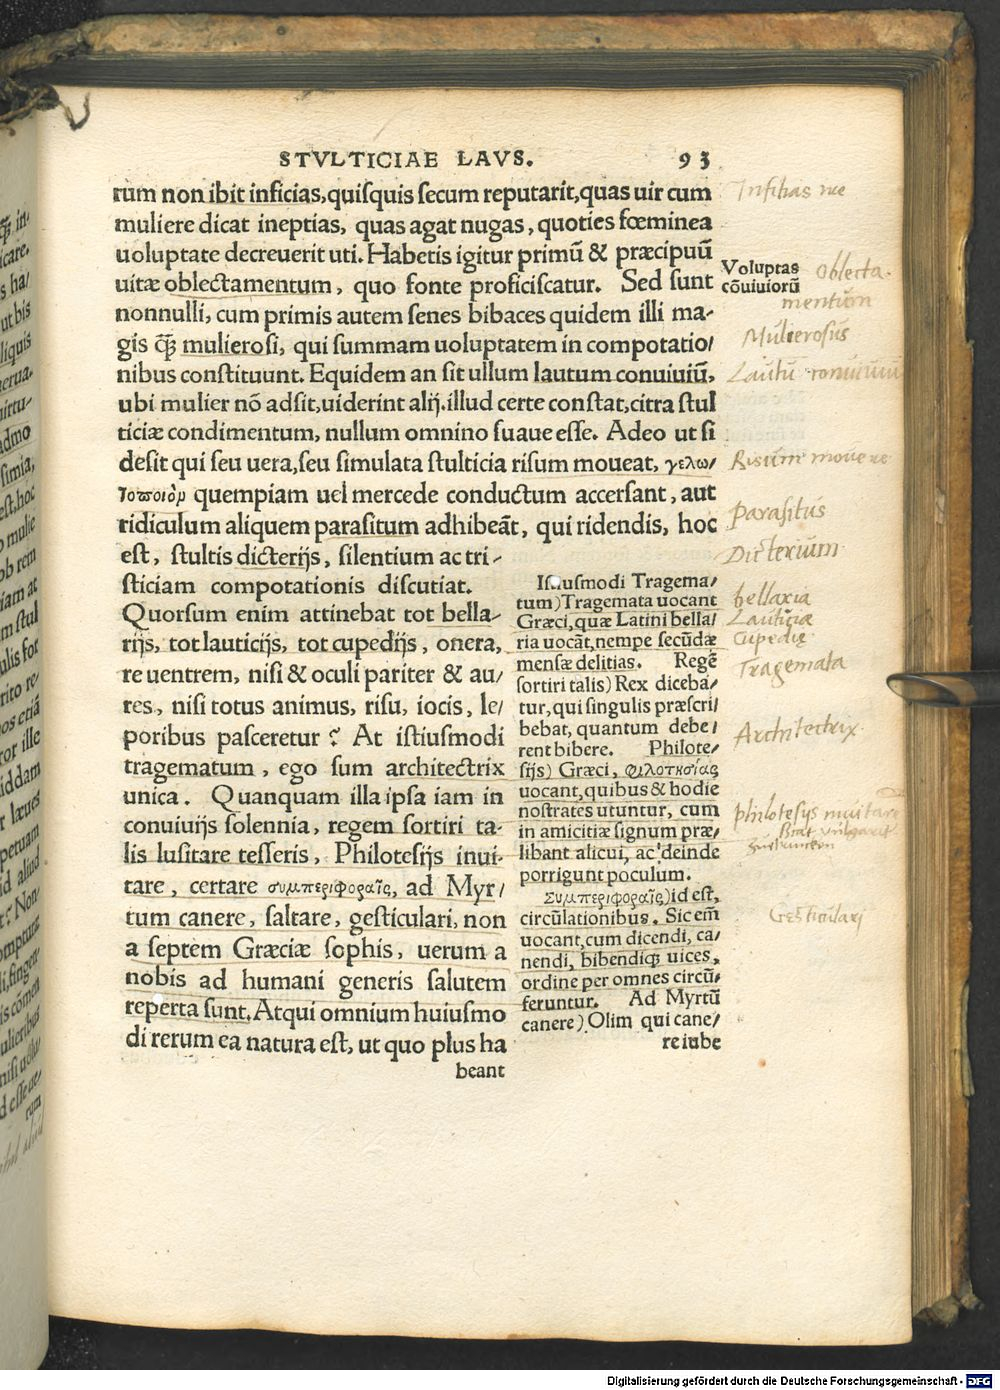 STVLTICIAE LAVS. 93
rum non ibit inficias, quiſquis ſecum reputarit, quas uir cum
muliere dicat ineptias, quas agat nugas, quoties fœminea
uoluptate decreuerit uti. Habetis igitur primū & præcipuū
uitæ oblectamentum, quo fonte proficiſcatur. Sed ſunt
nonnulli, cum primis autem ſenes bibaces quidem illi ma-
gis ꝙ̃ mulieroſi, qui ſummam uoluptatem in compotatio/
nibus conſtituunt. Equidem an ſit ullum lautum conuiuiū,
ubi mulier nō adſit, uiderint alij. illud certe conſtat, citra ſtul
ticiæ condimentum, nullum omnino ſuaue eſſe. Adeo ut ſi
deſit qui ſeu uera, ſeu ſimulata ſtulticia riſum moueat, γελω/
τοποιὸρ quempiam uel mercede conductum accerſant, aut
ridiculum aliquem paraſitum adhibeāt, qui ridendis, hoc
eſt, ſtultis dicterijs, ſilentium ac tri-
ſticiam compotationis diſcutiat.
Quorſum enim attinebat tot bella-
rijs, tot lauticijs, tot cupedijs, onera,
re uentrem, niſi & oculi pariter & au/
res, niſi totus animus, riſu, iocis, le/
poribus paſceretur? At iſtiuſmodi
tragematum, ego ſum architectrix
unica. Quanquam illa ipſa iam in
conuiuijs ſolennia, regem ſortiri ta-
lis luſitare teſſeris, Philoteſijs inui-
tare, certare συμπεριφοραῖς, ad Myr/
tum canere, ſaltare, geſticulari, non
a ſeptem Græciæ ſophis, uerum a
nobis ad humani generis ſalutem
reperta ſunt. Atqui omnium huiuſmo
di rerum ea natura eſt, ut quo plus ha
beant
Voluptas
cōuiuiorū
Iſtiuſmodi Tragema/
tum) Tragemata uocant
Græci, quæ Latini bella/
ria uocāt, nempe ſecūdæ
menſæ delitias. Regē
ſortiri talis) Rex diceba/
tur, qui ſingulis præſcri
bebat, quantum debe/
rent bibere. Philote/
ſijs) Græci, φιλοτησίας
uocant, quibus & hodie
noſtrates utuntur, cum
in amicitiæ ſignum præ/
libant alicui, ac deinde
porrigunt poculum.
Συμπεριφοραῖς) id eſt,
circūlationibus. Sic em̄
uocant, cum dicendi, ca/
nendi, bibendiqꝫ uices,
ordine per omnes circū/
feruntur. Ad Myrtū
canere) Olim qui cane/
re iube
Infitias ire
Oblecta-
mentum
Mulierosus
Lautū conuiuiū
Risum mouere
Parasitus
Dicterium
bellaria
Lauticiæ
Cupediæ
Tragemata
Architectrix
philotesijs inuitare
Gesticulari
Digitalisierung gefördert durch die Deutsche Forschungsgemeinschaft - DFG